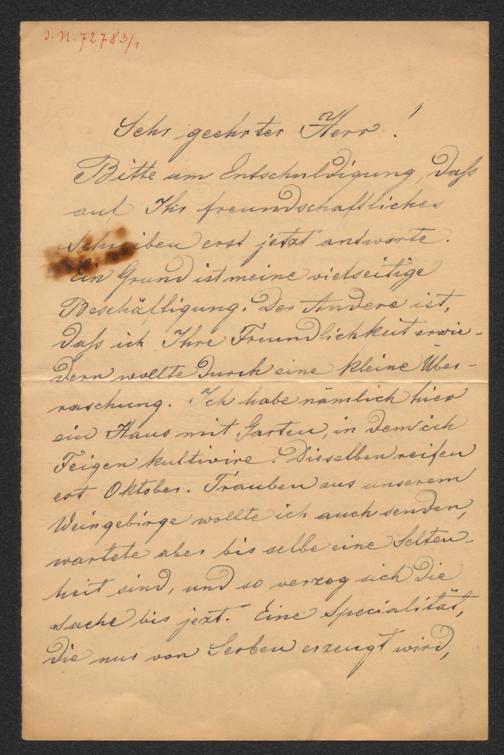 J. N. 72783/1
Sehr geehrter Herr!
Bitte um Entschuldigung, daß
auf Ihr freundschaftliches
Schreiben erst jetzt antworte.
Ein Grund ist meine vielseitige
Beschäftigung. Der Andere ist,
daß ich Ihre Freundlichkeit erwie-
dern wollte durch eine kleine Über-
raschung. Ich habe nämlich hier
ein Haus mit Garten, in dem ich
Feigen kultivire. Dieselben reifen
est Oktober. Trauben aus unserem
Weingebirge wollte ich auch senden,
wartete aber bis selbe eine Selten-
heit sind, und so verzog sich die
Sache bis jezt. Eine Specialität,
die nur von Serben erzeugt wird,